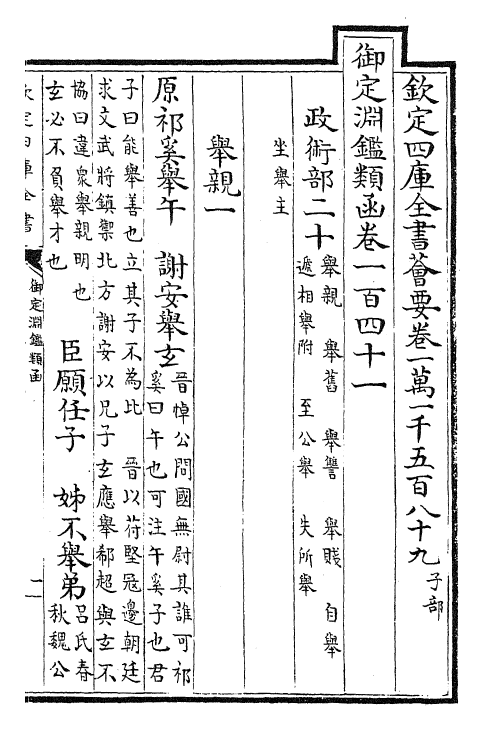 欽定四庫全書薈要卷一萬一千五百八十九 子部
御定淵鑑類函卷一百四十一
政術部二十 舉親 舉舊 舉讐 舉賤 自舉
遞相舉附 至公舉 失所舉
坐舉主
舉親一
原祁奚舉午 謝安舉玄 晉悼公問國無尉其誰可祁
奚曰午也可注午奚子也君
子曰能舉善也立其子不為比 晉以苻堅冦邊朝廷
求文武將鎮禦北方謝安以兄子玄應舉郗超與玄不
協曰違衆舉親明也
玄必不負舉才也 臣願任子 姊不舉弟 呂氏春
秋魏公
欽定四庫全書
御定淵鑑類函
二